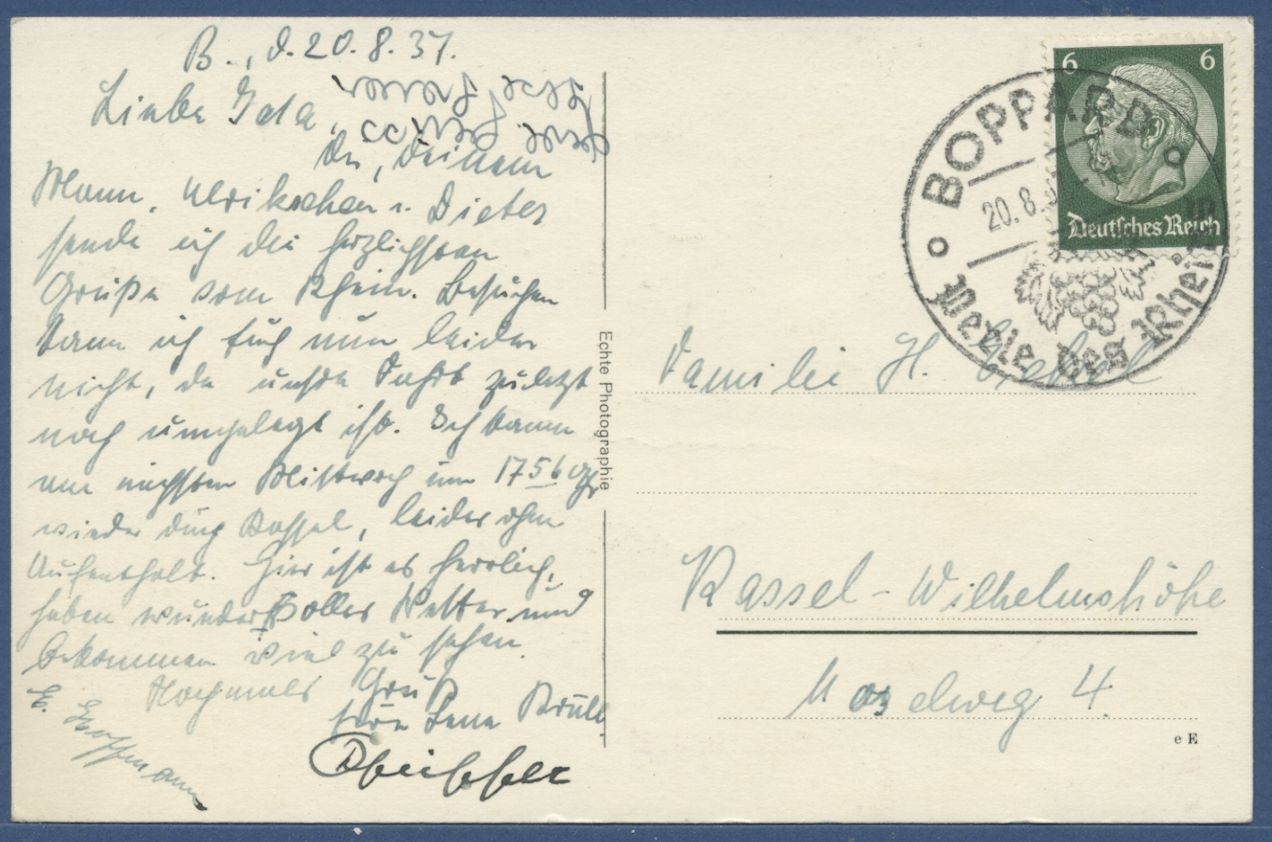 B., d. 20.8.37.
Liebe Jola,
Dir, Deinem
Mann, Ulrikchen u. Dieter
sende ich die herzlichsten
Grüße vom Rhein. Besuchen
kann ich Euch nun leider
nicht, da unsre Fahrt zuletzt
noch umgelegt ist. Ich komme
am nächsten Mittwoch um 17 56 Uhr
wieder durch Kassel, leider ohne
Aufenthalt. Hier ist es herrlich,
haben wundervolles Wetter und
bekommen viel zu sehen.
Nochmals Gruß
Eure Lena Krull
E. Hoffmann
Echte Photographie
BOPPARD
20.8.3
Perle des Rheins
6 6
Deutsches Reich
Familie H.
Kassel-Wilhelmshöhe
Moselweg 4.
e E